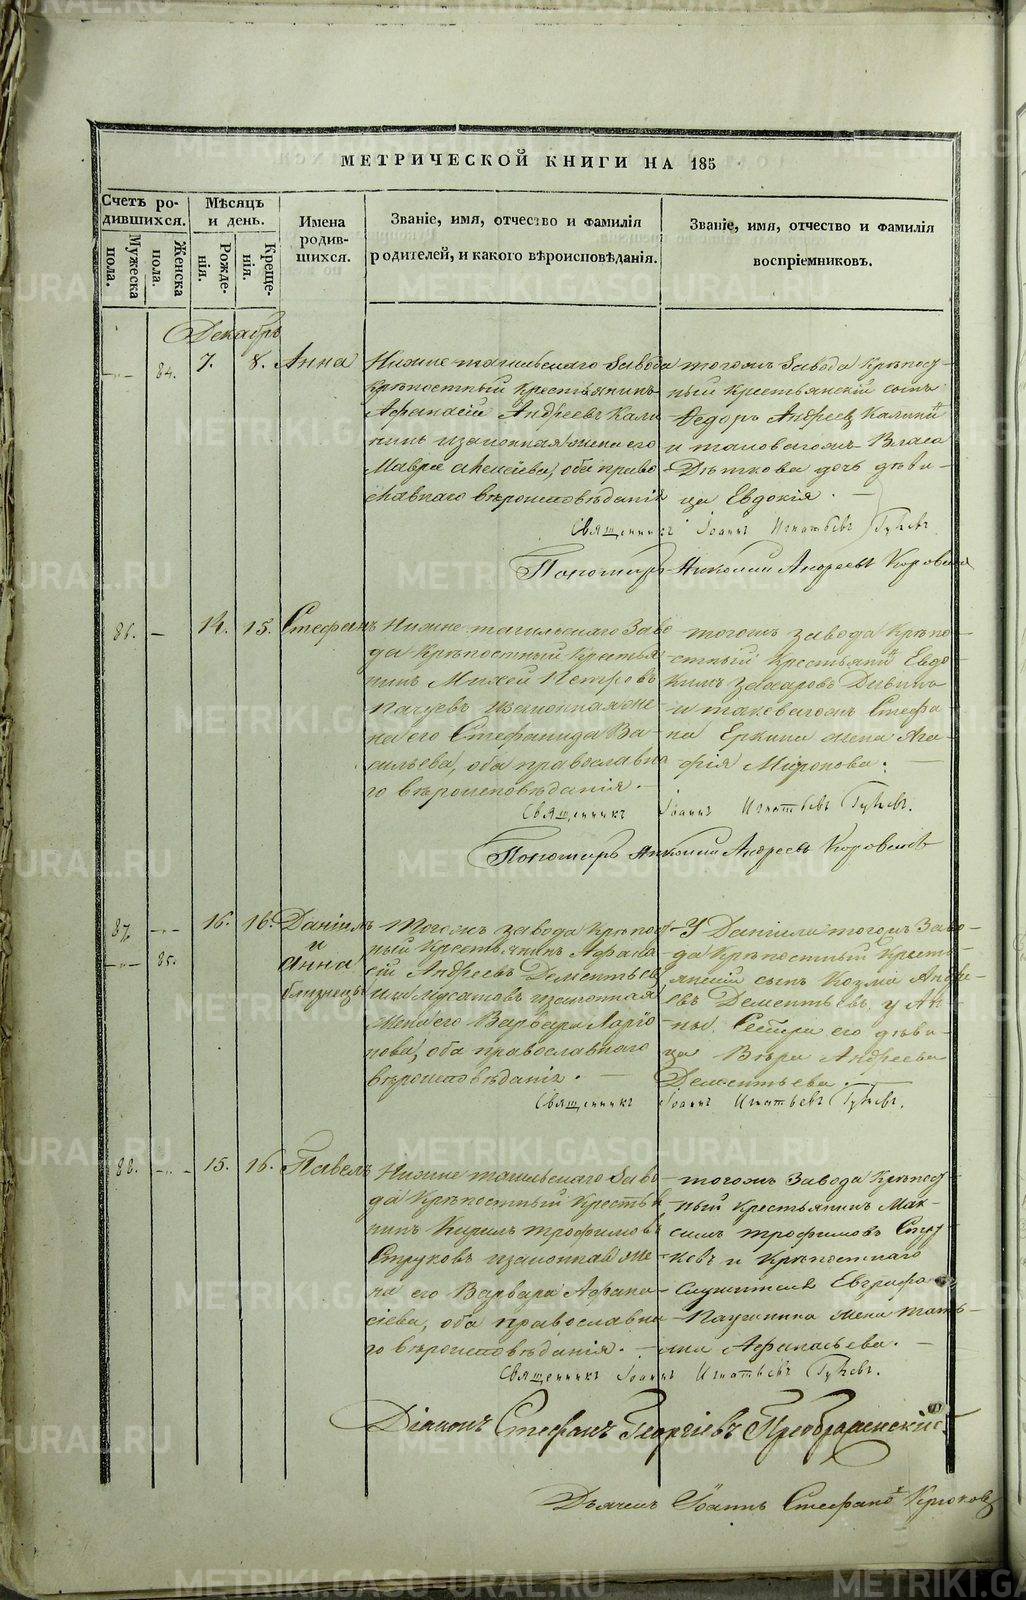 МЕТРИЧЕСКОЙ КНИГИ НА 185
Счетъ ро-
дившихся.
Мужеска
пола.
Женска
пола.
Мѣсяцъ
и день.
Рожде-
нія.
Креще-
нія.
Имена
родив-
шихся.
Званіе, имя, отчество и фамилія
родителей, и какого вѣроисповѣданія.
Званіе, имя, отчество и фамилія
воспріемниковъ.
Декабрь
84. 7. 8. Анна
Нижне-тагильскаго Завода
крѣпостный крестьянинъ
Афанасій Андреевъ Кали
нинъ и законная жена его
Мавра Алексѣева, оба право
славнаго вѣроисповѣданія
тогожъ Завода Крѣпост
ный Крестьянскій сынъ
Федоръ Андреевъ Калинин
и таковагожъ Власа
Дѣткова дочь дѣви-
ца Евдокія.
Священникъ Іоаннъ Игнатьевъ Гусевъ
Пономарь Николай Андреевъ Коровинъ
86. 14. 15. Стефанъ
Нижне-тагильскаго Заво
да Крѣпостный Крестья
нинъ Михей Петровъ
Пачуевъ и законная же
на его Стефанида Ва-
сильева, оба православна
го вѣроисповѣданія.
тогожъ завода Крѣпо-
стный крестьянин Евдо
кимъ Захаровъ
и таковагожъ Стефа-
на Еркина жена Ага-
фія Миронова.
Священникъ Іоаннъ Игнатьевъ Гусевъ.
Пономарь Николай Андреевъ
87. 16. 16. Даніилъ
85. и
Анна
близнецы
Тогожъ завода Крѣпост
ный Крестьянинъ Афана
сій Андреевъ Дементьев
и законная
жена его Варвара Ларіо
нова, оба православнаго
вѣроисповѣданія.
У Даніила тогожъ Заво-
да Крѣпостный Кресть-
янскій сынъ Козма Андре-
евъ Дементьевъ, у Ан-
ны Сестра его дѣви-
ца Вѣра Андреева
Дементьева.
Священникъ Іоаннъ Игнатьевъ Гусевъ.
88. 15. 16. Павелъ
Нижне-тагильскаго Заво
да Крѣпостный Крестья
нинъ Кирилъ Трофимовъ
Струковъ и законная же
на его Варвара Афана-
сіева, оба православна
го вѣроисповѣданія.
тогожъ Завода Крѣпост
ный Крестьянинъ Мак-
симъ Трофимовъ Стру
ковъ и Крѣпостнаго
служителя Евграфа
Паушкина жена Тать-
яна Афанасьева.
Священникъ Іоаннъ Игнатьевъ Гусевъ.
Діаконъ Стефанъ Георгіевъ Преображенскій.
Дьячекъ Іоаннъ Стефанов Крюковъ
METRIKI.GASO-URAL.RU